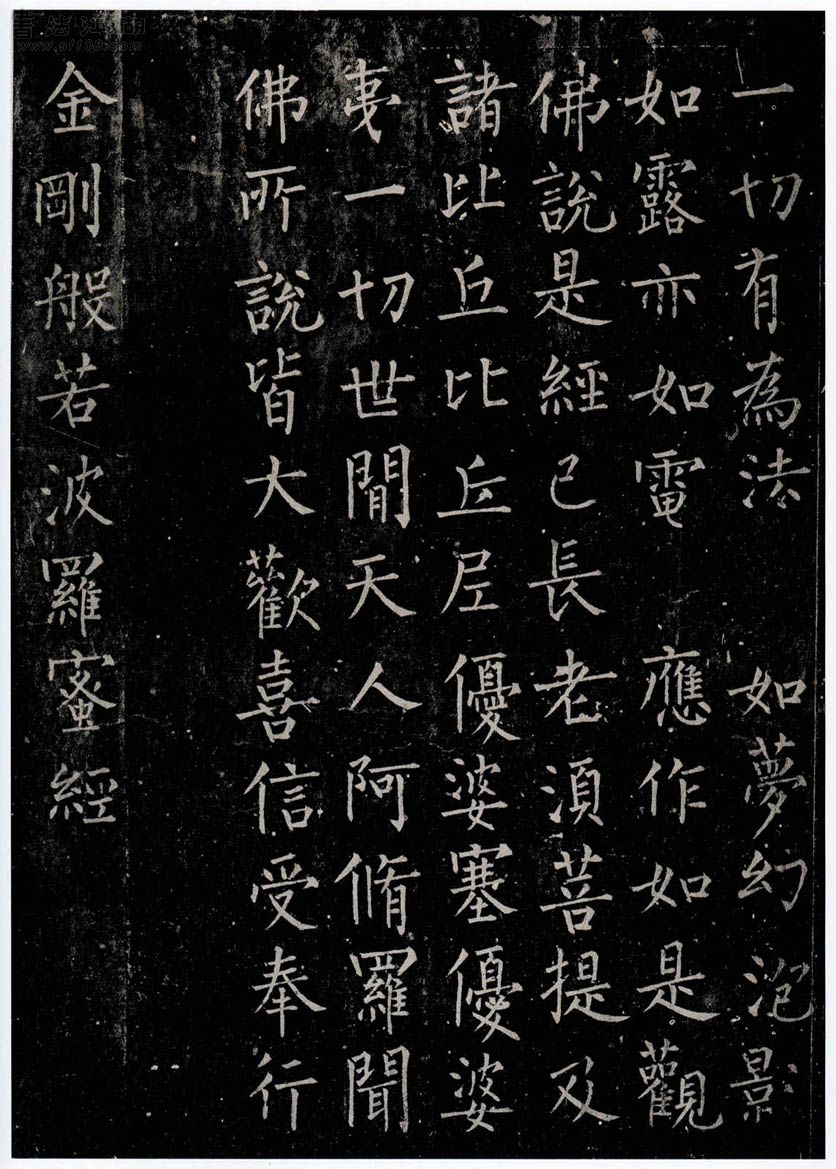 一切有為法 如夢幻泡影
如露亦如電 應作如是觀
佛說是經已長老須菩提及
諸比丘比丘尼優婆塞優婆
夷一切世間天人阿脩羅聞
佛所說皆大歡喜信受奉行
金剛般若波羅蜜經
書法江湖
www.sf108.com